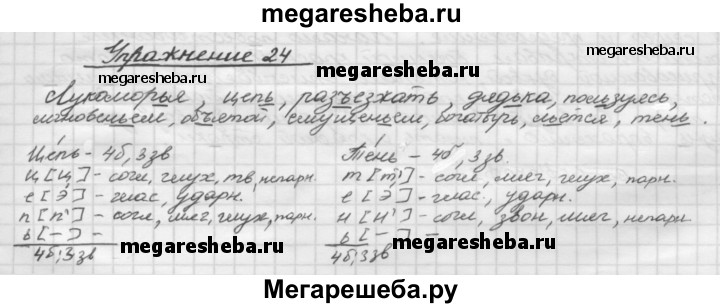 megaresheba.ru
Упражнение 24
megaresheba.ru
megaresheba.ru
Лукоморья, цепь, разъезжать, дядька, пользуясь,
мановеньем, объятой, смущеньем, богатырь, льётся, тень.
Цепь - 4б, 3зв
ц [ц] - согл, глух, тв, непарн.
е [э́] - глас, ударн.
п [п'] - согл, мяг, глух, парн.
ь [-] -
4б, 3зв
Тень - 4б, 3зв.
т [т'] - согл, мяг, глух, парн.
е [э́] - глас, ударн.
н [н'] - согл, звон, мяг, непарн.
ь [-] -
4б, 3зв
megaresheba.ru
megaresheba.ru
Мегарешеба.ру